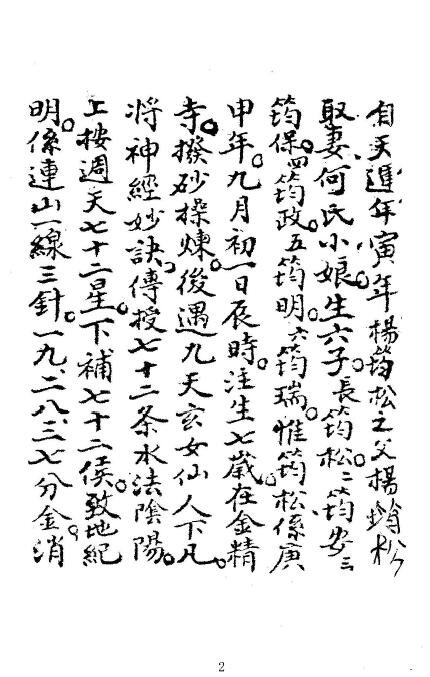 自天進年寅年楊筠松之父楊筠松
取妻何氏小娘。生六子。長筠松。二筠安三
筠保。四筠政。五筠明。六筠瑞。惟筠松係庚
申年。九月初一日辰時。注生七歲。在金精
寺。撥砂操煉。後遇九天玄女仙人下凡。
将神經妙訣。傳授七十二条水法陰陽。
上按週天七十二星。下補七十二侯。致地紀
明。係連山一線三針。一九、二八、三七分金。消
2